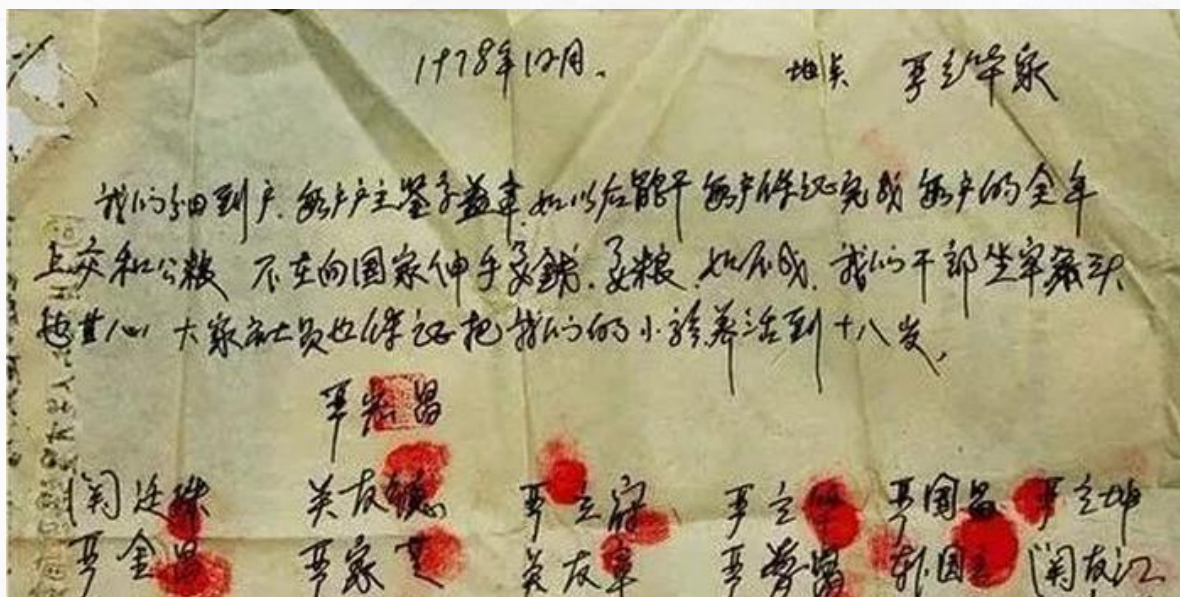 1978年12月. 地点 严立华家
我们分田到户.每户户主签字盖章.如以后能干每户保证完成每户的全年
上交和公粮 不在向国家伸手要钱.要粮.如不成.我们干部坐牢杀头
也甘心 大家社员也保证把我们的小孩养活到十八岁,
严宏昌
关廷珠 关友德 严立符 严立华 严国昌 严立坤
严金昌 严家芝 关友章 严学昌 韩国云 关友江